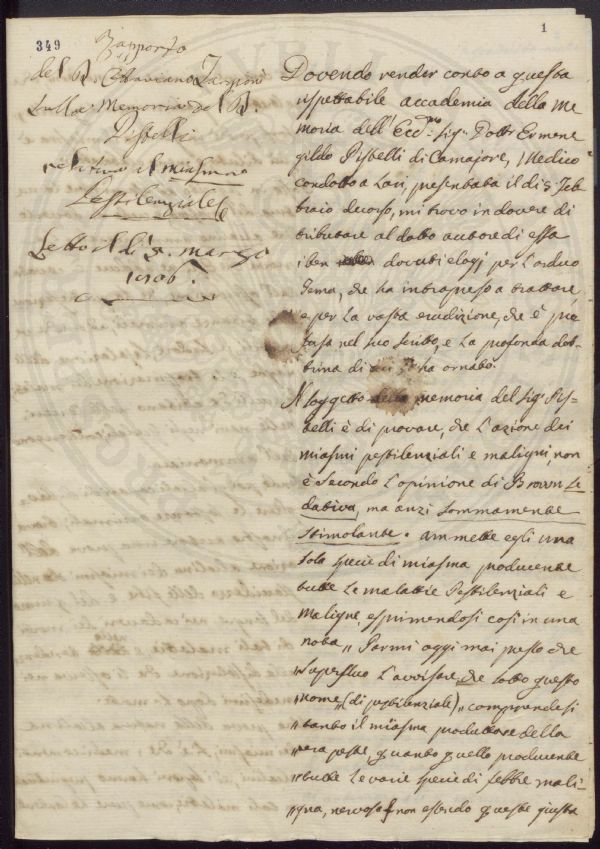 349
1
Rapporto
del D. Ottaviano Targioni
sulla Memoria del D.
Pistelli
relativa al miasma
Pestilenziale
Letto il dì 5. marzo
1806.
Dovendo render conto a questa
rispettabile accademia della me
moria dell'Ecc.mo Sig. Dott. Ermene
gildo Pistelli di Camajore, Medico
condotto a Lari, presentata il dì 5 Feb
braio decorso, mi trovo in dovere di
tributare al dotto autore di essa
i ben dovuti elogj per l'arduo
Tema, che ha intrapreso a trattare
e per la vasta erudizione, che è
sa nel suo scritto, e la profonda dot
trina di cui l'ha ornato.
Il soggetto della memoria del Sig. Pis-
telli è di provare, che l'azione dei
miasmi pestilenziali e maligni, non
è secondo l'opinione di Brown se
dativa, ma anzi sommamente
stimolante. ammette egli una
sola specie di miasma producente
tutte le malattie Pestilenziali e
Maligne, esprimendosi così in una
nota „ Parmi oggi mai posto che
„ superfluo l'avvisare, che sotto questo
„ nome „ (di pestilenziale) „ comprendesi
„ tanto il miasma produttore della
„ vera peste quanto quello producente
„ tutte le varie specie di febbre mali
„ gna, nervosa non essendo queste giusta